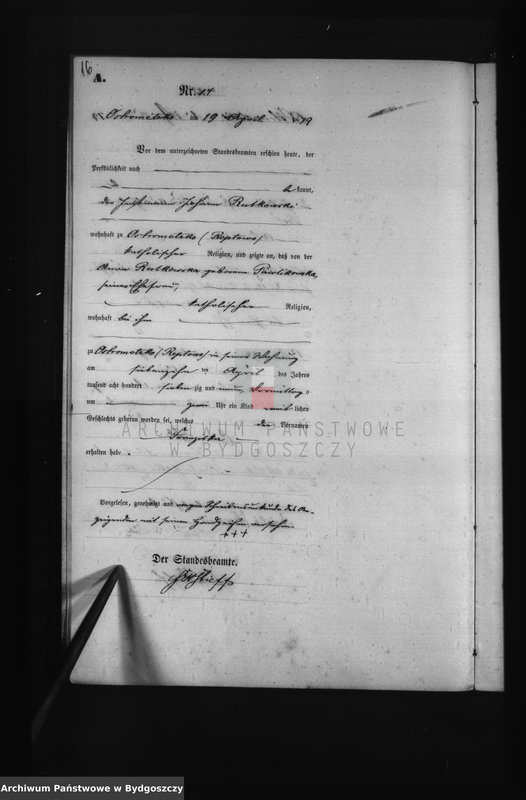 16
A.
Nr. 14
Ostrometzko 19 April 1879
Vor dem unterzeichneten Standesbeamten erschien heute, der
Persönlichkeit nach
kannt,
der Johann Rutkowski
wohnhaft zu Ostrometzko (Reptowo)
katholischer Religion, und zeigte an, daß von der
Anna Rutkowska geborene Pawlikowska,
seiner Ehefrau,
katholischer Religion,
wohnhaft bei ihm
zu Ostrometzko (Reptowo) in seiner Wohnung
am siebenzehn ten April des Jahres
tausend acht hundert sieben zig und neun, Vormittags
um zwei Uhr ein Kind weib lichen
Geschlechts geboren worden sei, welches den Vornamen
Franziska
erhalten habe.
Vorgelesen, genehmigt und wegen Schreibensunkunde des An-
zeigenden mit seinem Handzeichen versehen
+++
Der Standesbeamte.
ARCHIWUM PAŃSTWOWE
W BYDGOSZCZY
Archiwum Państwowe w Bydgoszczy